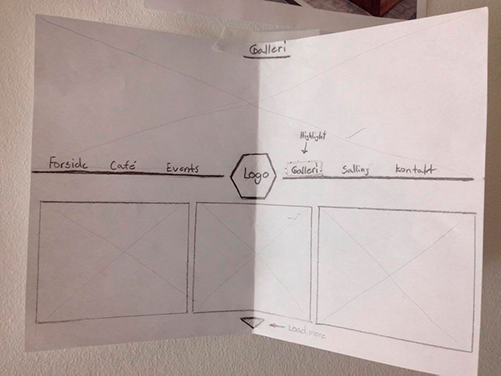 Galleri
Highlight
Forside Café Events Logo Galleri Salling Kontakt
Load more